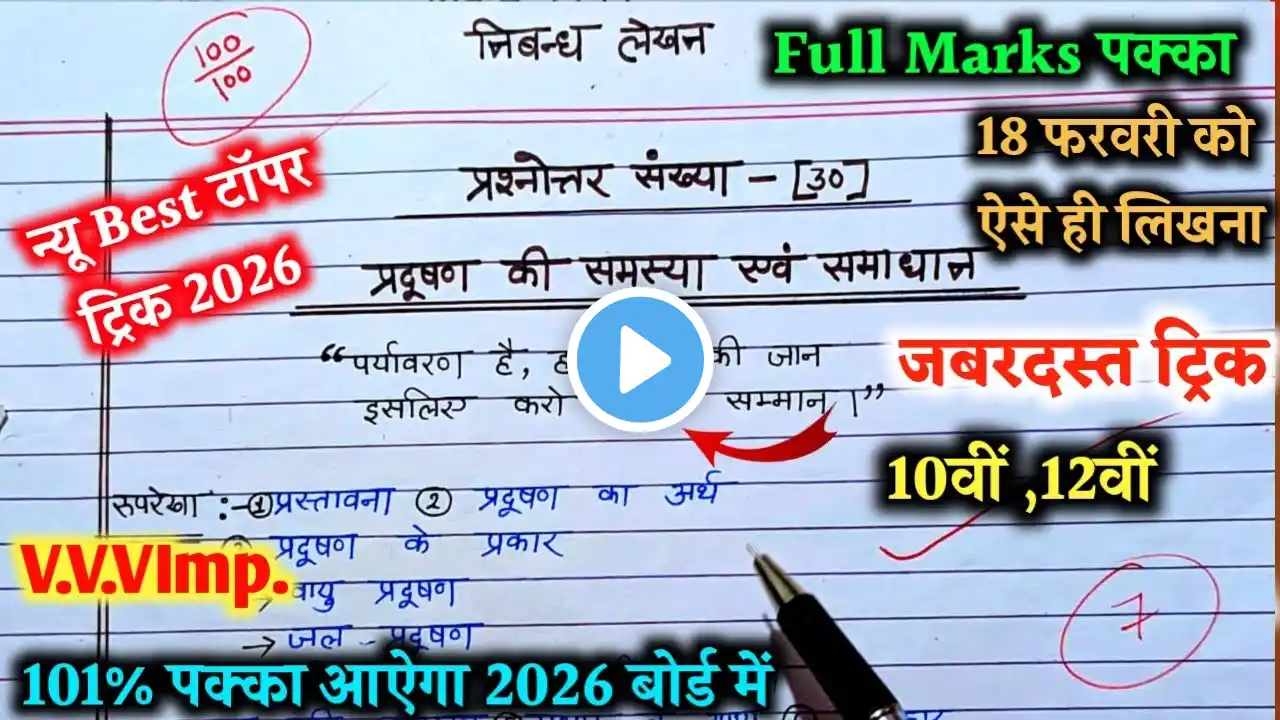 निबन्ध लेखन
100
100
Full Marks पक्का
18 फरवरी को
ऐसे ही लिखना
न्यू Best टॉपर
ट्रिक 2026
प्रश्नोत्तर संख्या - [30]
प्रदूषण की समस्या एवं समाधान
“पर्यावरण है, की जान
इसलिए करो सम्मान।”
जबरदस्त ट्रिक
10वीं ,12वीं
रुपरेखा :- ① प्रस्तावना ② प्रदूषण का अर्थ
प्रदूषण के प्रकार
V.V.VImp.
→ वायु प्रदूषण
→ जल - प्रदूषण
7
101% पक्का आऐगा 2026 बोर्ड में